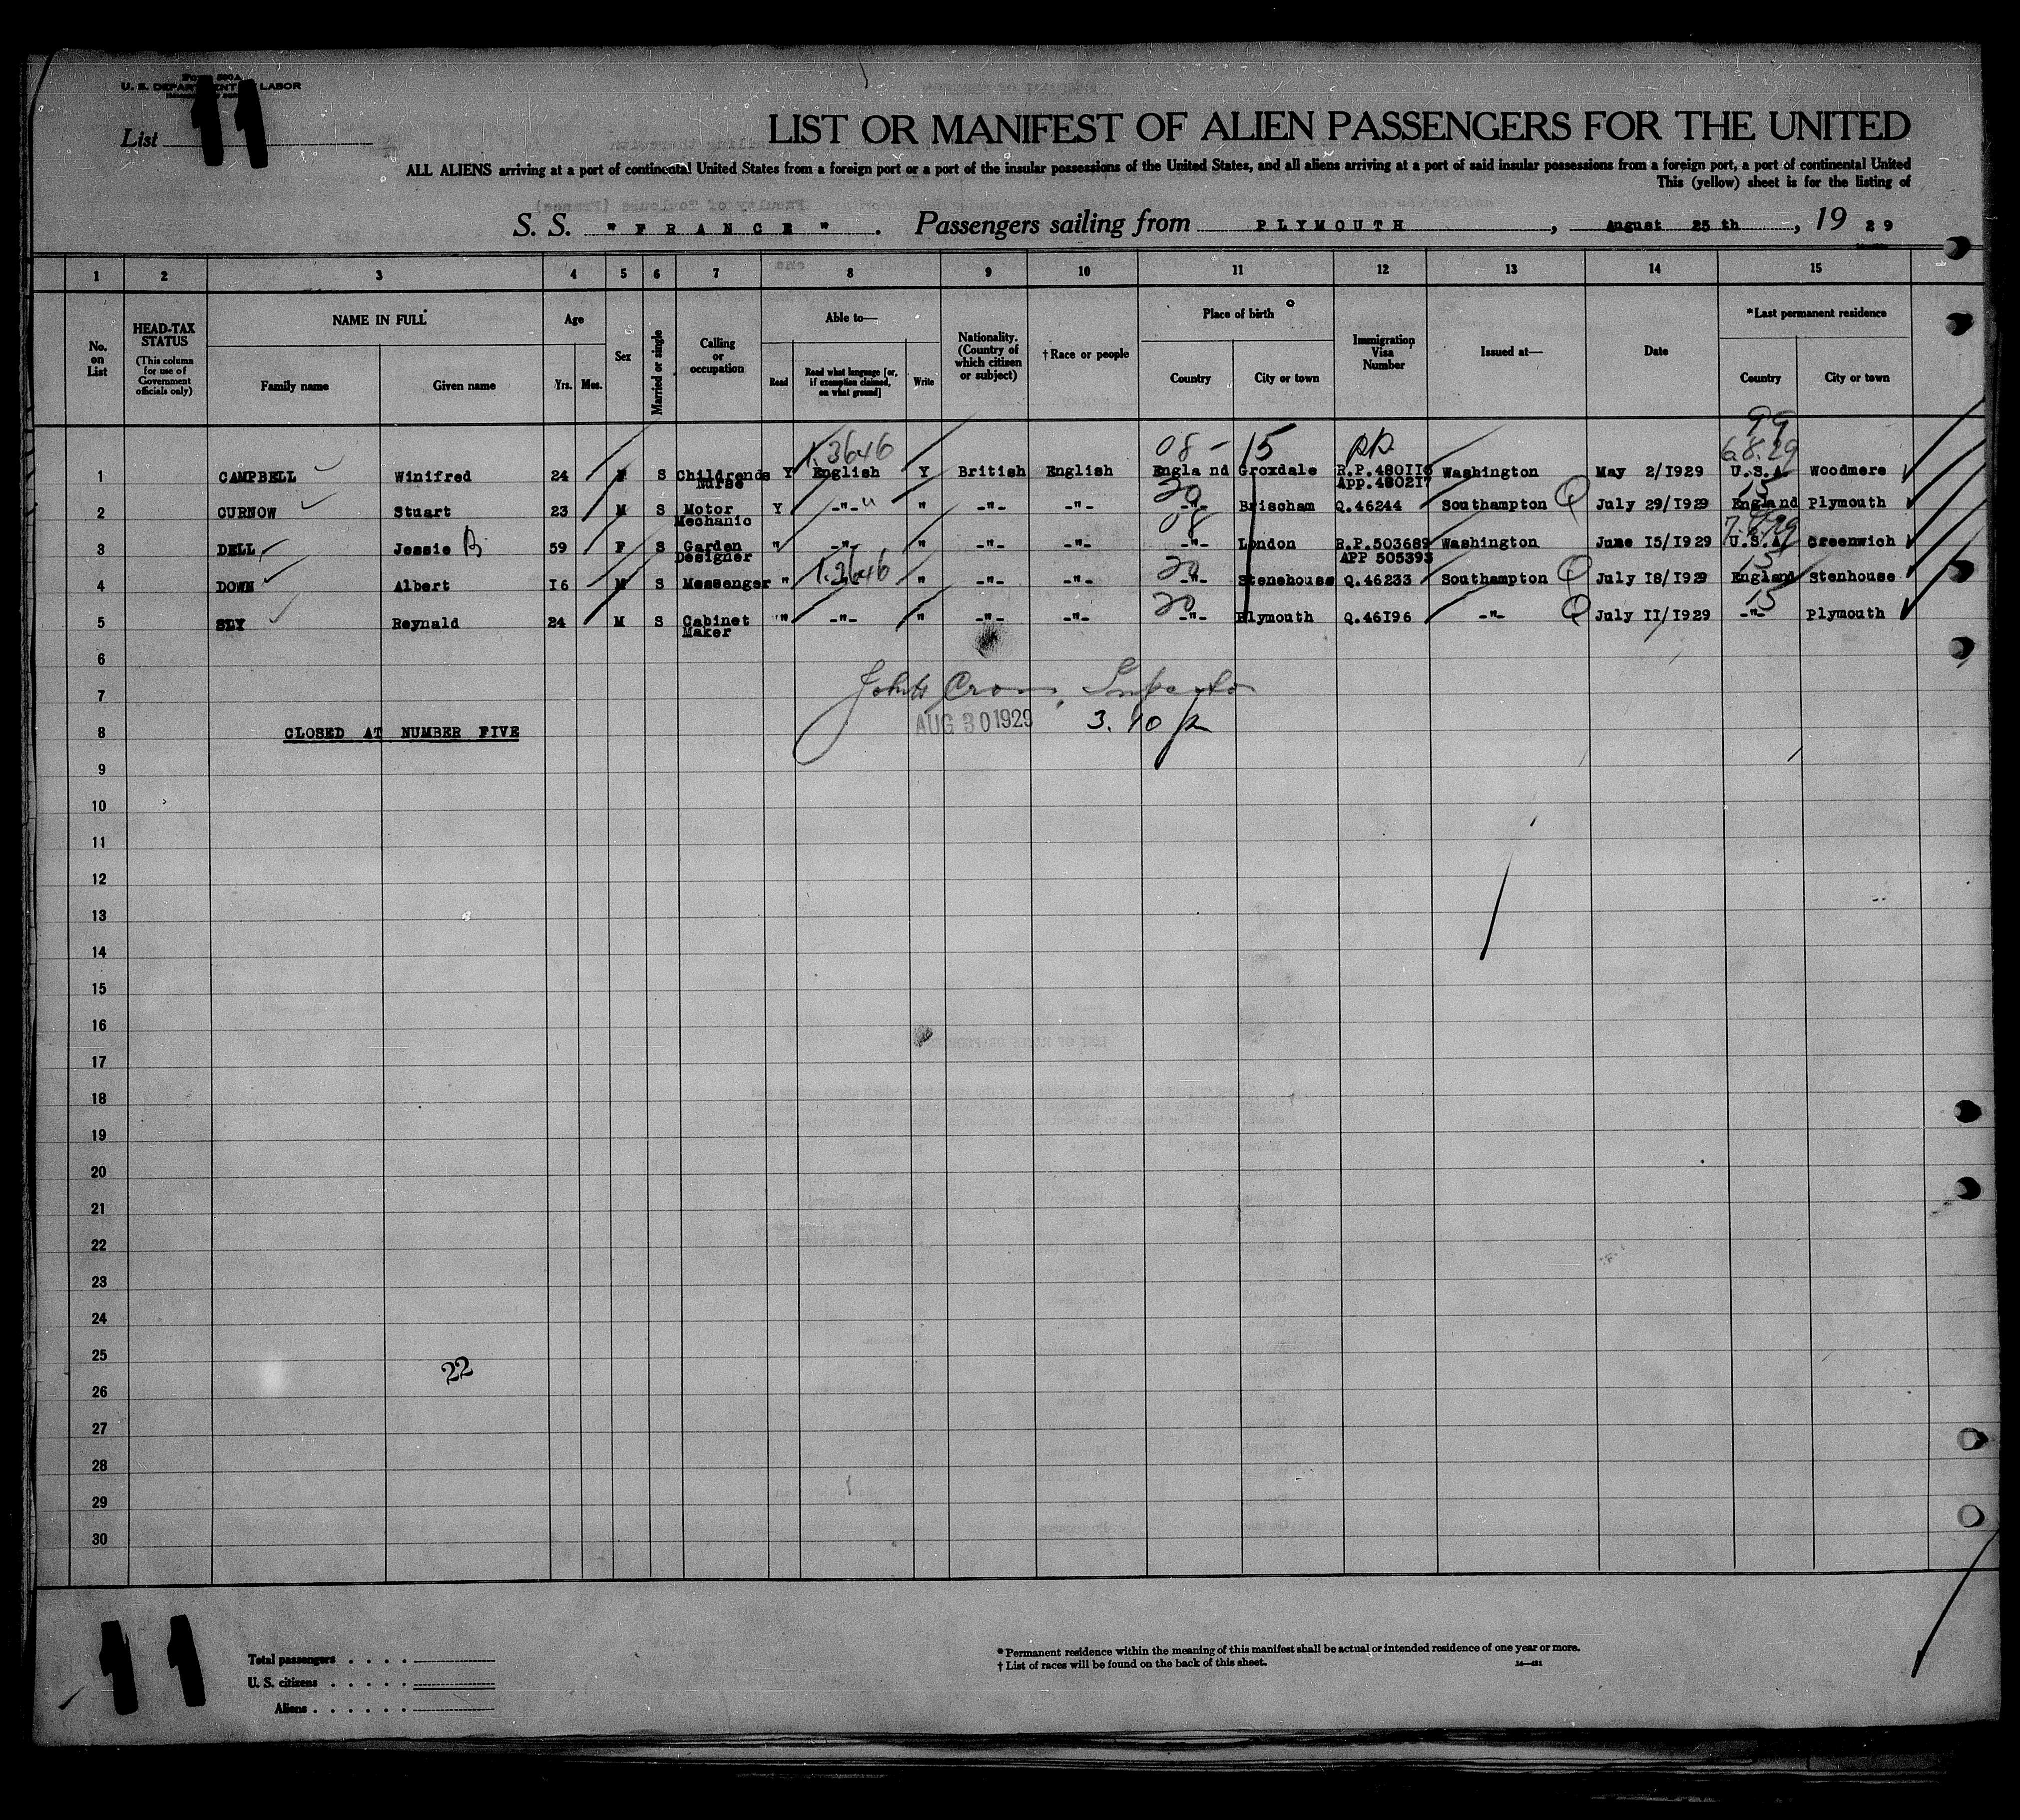 Form 500 A
U. S. DEPARTMENT OF LABOR
List 11
LIST OR MANIFEST OF ALIEN PASSENGERS FOR THE UNITED
ALL ALIENS arriving at a port of continental United States from a foreign port or a port of the insular possessions of the United States, and all aliens arriving at a port of said insular possessions from a foreign port, a port of continental United
This (yellow) sheet is for the listing of
S. S. "FRANCE". Passengers sailing from PLYMOUTH, August 25 th, 19 29
1 2 3 4 5 6 7 8 9 10 11 12 13 14 15
No. on List
HEAD-TAX STATUS (This column for use of Government officials only)
NAME IN FULL Family name Given name
Age Yrs. Mos.
Sex
Married or single
Calling or occupation
Able to— Read Read what language [or, if exemption claimed, on what ground] Write
Nationality. (Country of which citizen or subject)
†Race or people
Place of birth Country City or town
Immigration Visa Number
Issued at—
Date
*Last permanent residence Country City or town
99
1.3646 08 - 15 RP. 6.8.29
1 CAMPBELL Winifred 24 F S Childrends Y English Y British English Engla nd Croxdale R.P.480116 Washington May 2/1929 U.S.A. Woodmere
Nurse App.480217
20 15
2 CURNOW Stuart 23 M S Motor Y -"- " -"- -"- -"- Brischam Q.46244 Southampton Q July 29/1929 England Plymouth
Mechanic 08
3 DELL Jessie B. 59 F S Garden " -"- " -"- -"- -"- London R.P.503689 Washington June 15/1929 U.S.A. Greenwich
Designer APP 505393
1.3646 20 15
4 DOWN Albert 16 M S Messenger " " -"- -"- -"- Stenehouse Q.46233 Southampton Q July 18/1929 England Stenhouse
20 15
5 SLY Reynald 24 M S Cabinet " -"- " -"- -"- -"- Plymouth Q.46196 -"- Q July 11/1929 -"- Plymouth
Maker
6
7
AUG 30 1929 3.10 p
8 CLOSED AT NUMBER FIVE
9
10
11
12
13
14
15
16
17
18
19
20
21
22
23
24
25
22
26
27
28
29
30
11
Total passengers
U. S. citizens
Aliens
* Permanent residence within the meaning of this manifest shall be actual or intended residence of one year or more.
† List of races will be found on the back of this sheet.
14—421